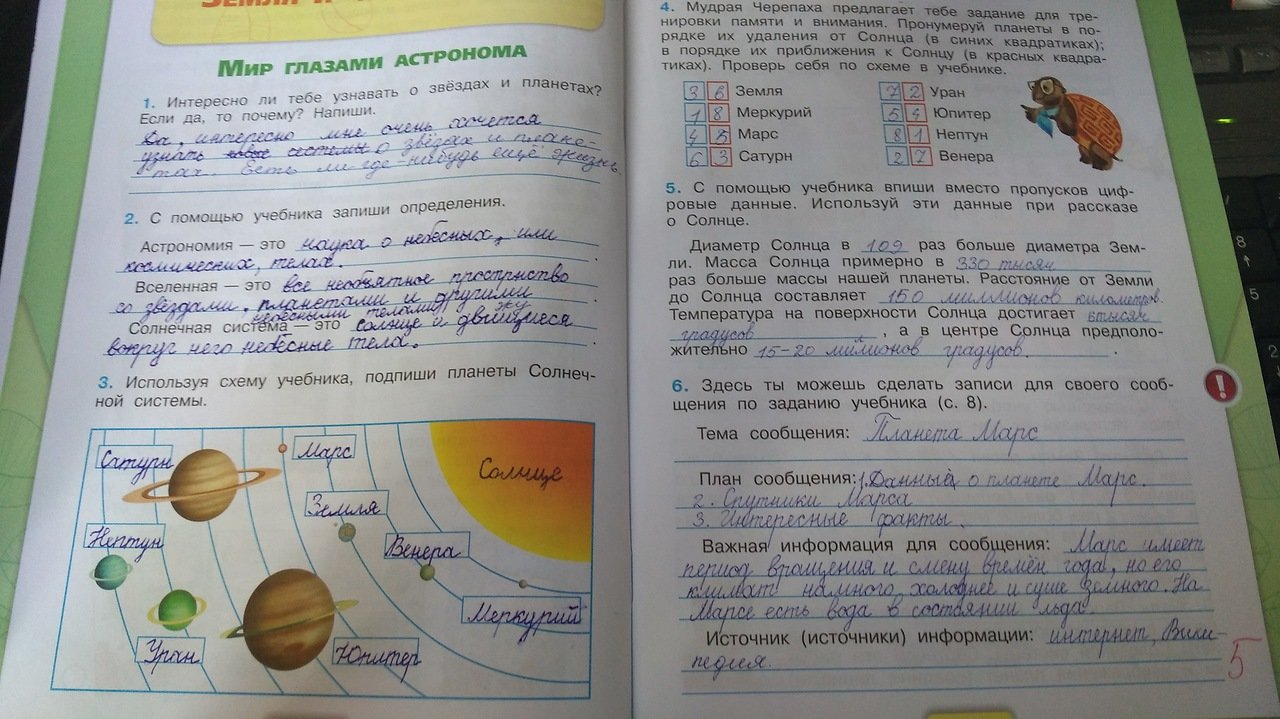 МИР ГЛАЗАМИ АСТРОНОМА
1. Интересно ли тебе узнавать о звёздах и планетах?
Если да, то почему? Напиши.
Да, интересно мне очень хочется
узнать о звёздах и плане-
тах. Есть ли где нибудь ещё жизнь.
2. С помощью учебника запиши определения.
Астрономия — это наука о небесных, или
космических, телах.
Вселенная — это все необъятное прострнство
со звёздами, планетами и другими
небесными телами
Солнечная система — это солнце и движущиеся
вокруг него небесные тела.
3. Используя схему учебника, подпиши планеты Солнеч-
ной системы.
Сатурн
Марс
Солнце
Земля
Нептун
Венера
Меркурий
Уран
Юпитер
4. Мудрая Черепаха предлагает тебе задание для тре-
нировки памяти и внимания. Пронумеруй планеты в по-
рядке их удаления от Солнца (в синих квадратиках);
в порядке их приближения к Солнцу (в красных квадра-
тиках). Проверь себя по схеме в учебнике.
3 6 Земля
1 8 Меркурий
4 5 Марс
6 3 Сатурн
7 2 Уран
5 4 Юпитер
8 1 Нептун
2 7 Венера
5. С помощью учебника впиши вместо пропусков циф-
ровые данные. Используй эти данные при рассказе
о Солнце.
Диаметр Солнца в 109 раз больше диаметра Зем-
ли. Масса Солнца примерно в 330 тысяч
раз больше массы нашей планеты. Расстояние от Земли
до Солнца составляет 150 миллионов километров.
Температура на поверхности Солнца достигает 6тысяч
градусов, а в центре Солнца предполо-
жительно 15-20 милионов градусов.
6. Здесь ты можешь сделать записи для своего сооб-
щения по заданию учебника (с. 8).
Тема сообщения: Планета Марс
План сообщения: 1. Данные о планете Марс.
2. Спутники Марса
3. Интересные факты.
Важная информация для сообщения: Марс имеет
период вращения и смену времён года, но его
климат намного холоднее и суше земного. На
Марсе есть вода в состоянии льда.
Источник (источники) информации: интернет, Вики-
педия.
5